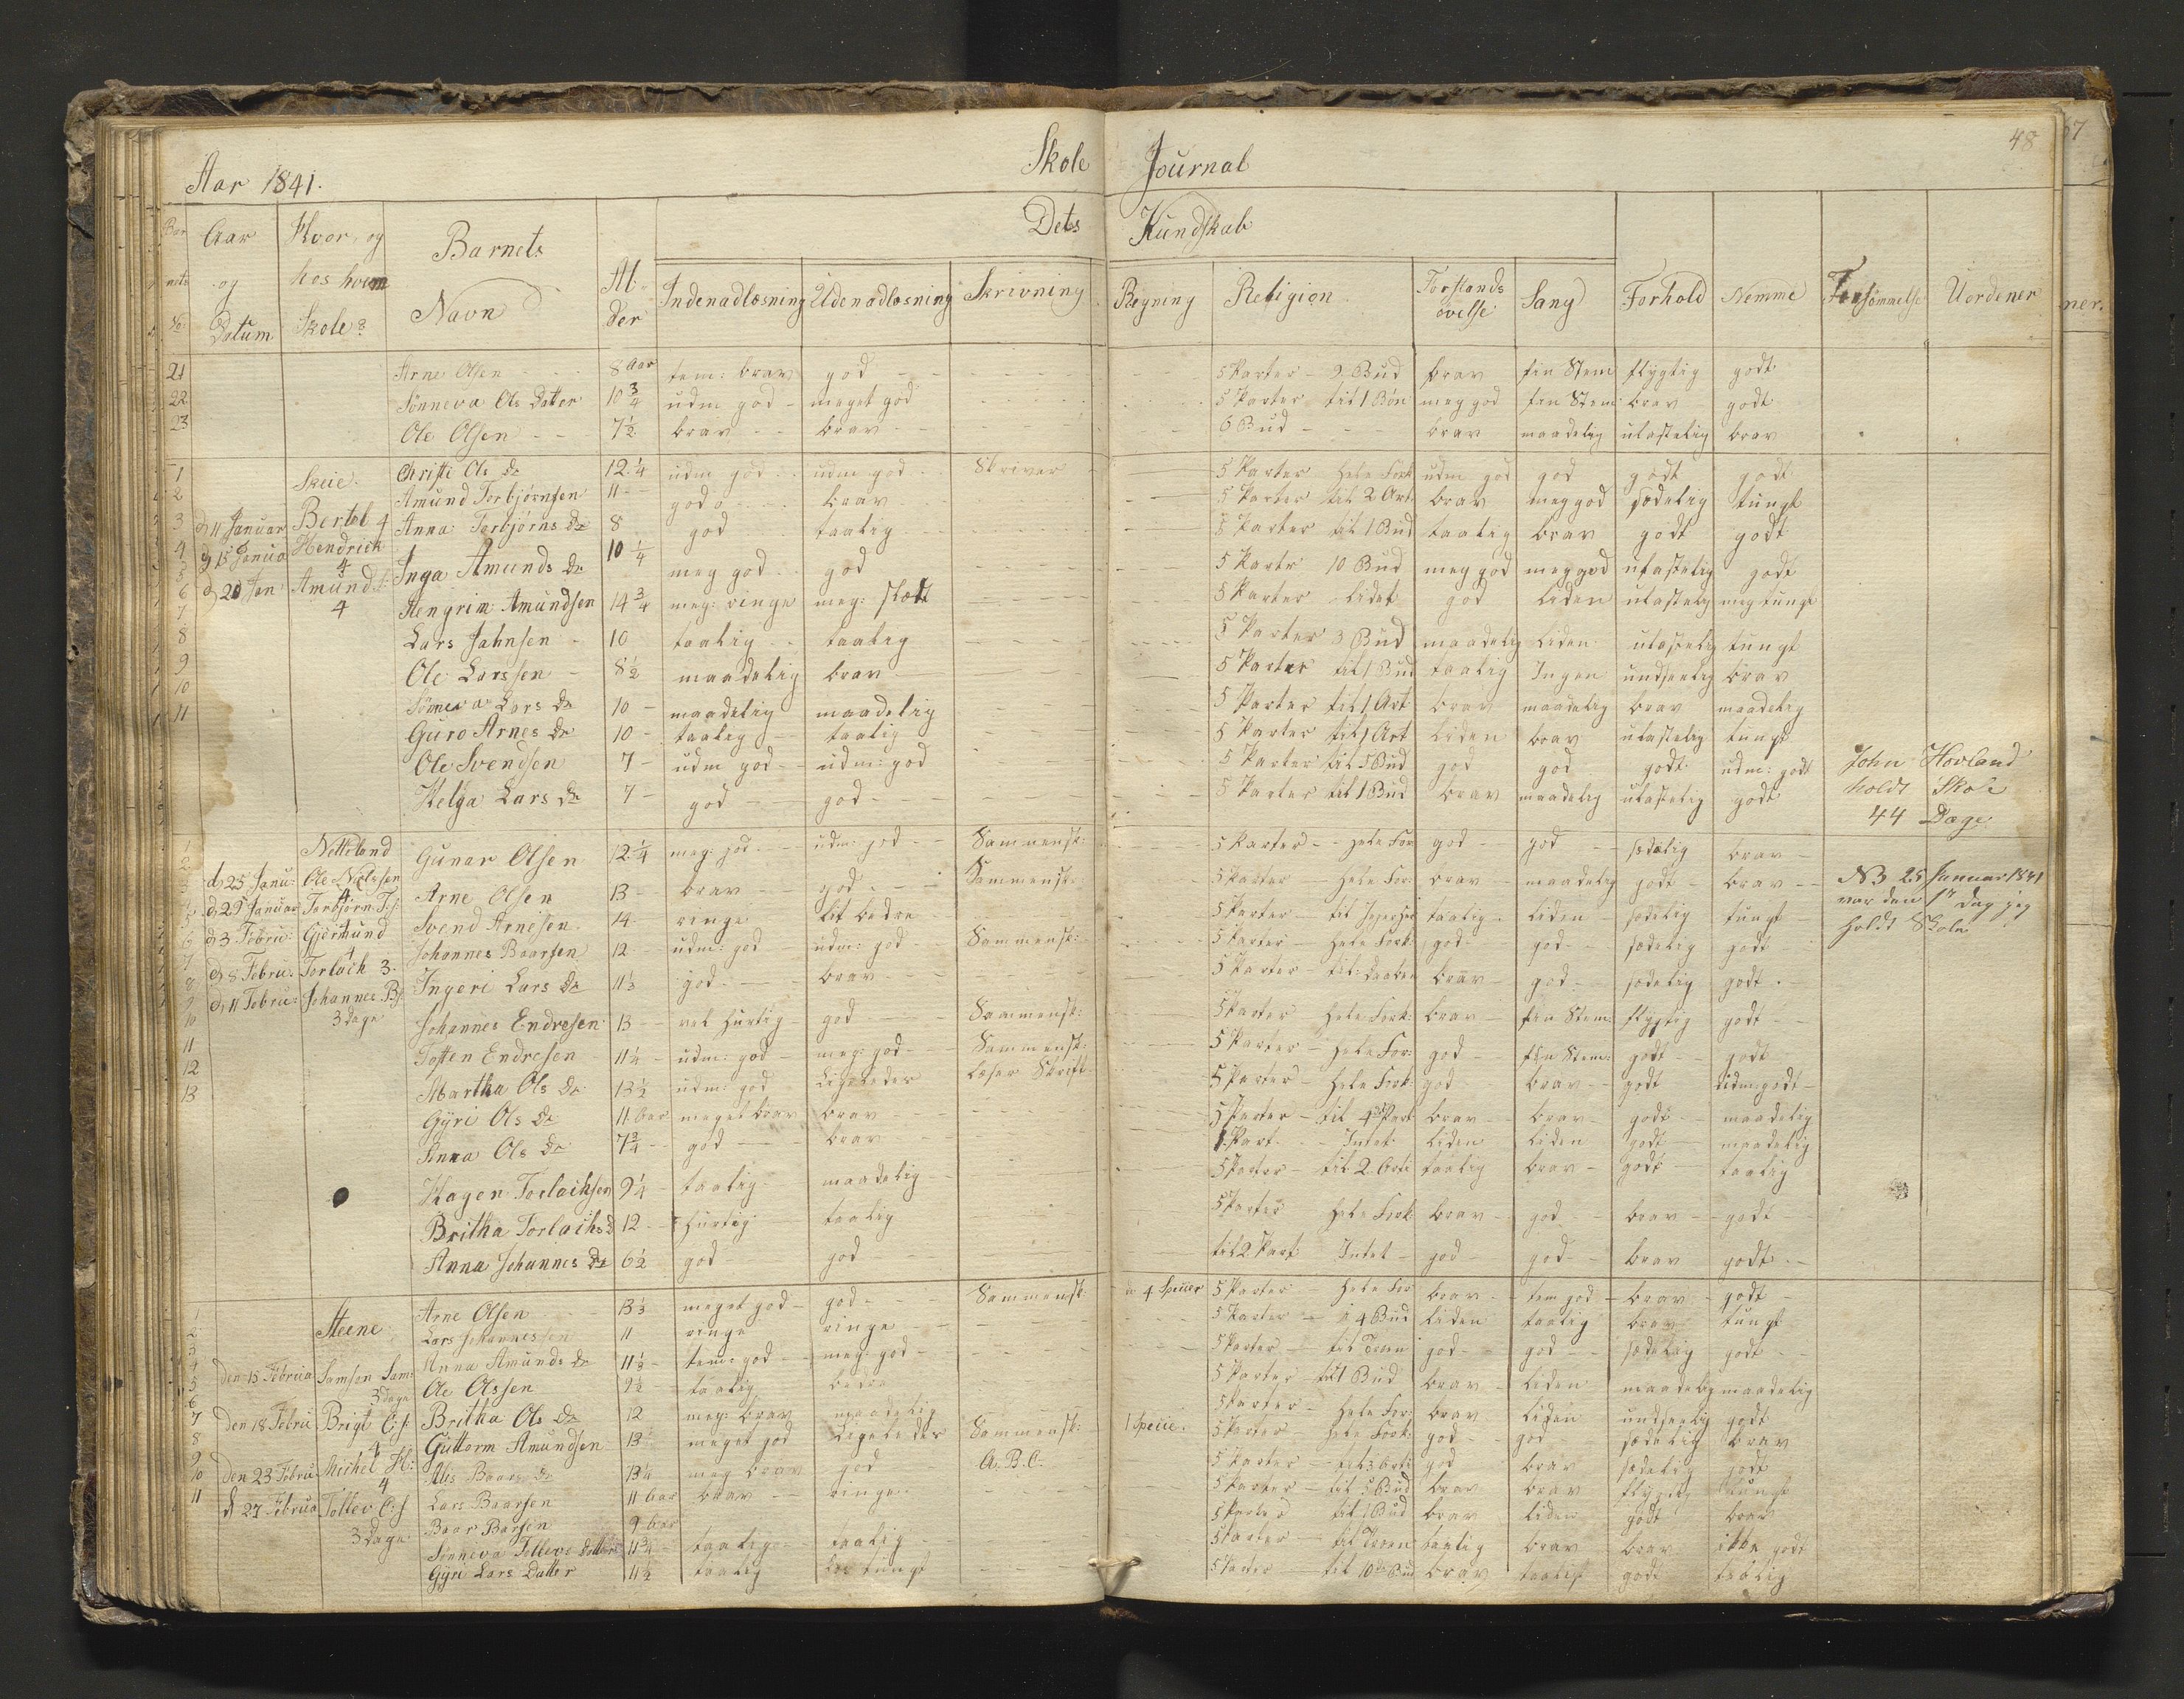 48
Aar 1841. Skole Journal
Dets Kundskab
Bar nets No: Aar og Datum Hvor, og hos hvem Skole? Barnets Navn Al der Indenadlæsning Udenadlæsning Skrivning Regning Religion Forstands övelse Sang Forhold Nemme Forsömmelse Uordener
21 Arne Olsen 8 Aar tem: brav god 5 Parter - 9 Bud brav fin Stem flygtig godt
22 Sönneva Ols Datter 10 3/4 udm god meget god 5 Parter til 1 Bön meg god fin Stem brav godt
23 Ole Olsen 7 1/2 brav brav 6 Bud brav maadelig ulastelig brav
1 Skeie Christi Ols Dr 12 1/4 udm god udm god Skriver 5 Parter hele Fork udm god god godt godt
2 Amund Torbjörnsen 11 god brav 5 Parter til 2 Art brav meg god sædelig tungt
3 d 11 Januar Bertel 4 Anna Torbjörns Dr 8 god taalig 5 Parter til 1 Bud taalig brav godt godt
4 d 15 Janua Hendrich 4 Inga Amunds Dr 10 1/4 meg god god 5 Parter 10 Bud meg god meg god ulastelig godt
5 d 20 Jan Amund 4 Stengrim Amundsen 14 3/4 meg: ringe meg: slett 5 Parter lidet god liden ulastelig meg tungt
6 Lars Jahnsen 10 taalig taalig 5 Parter 3 Bud maadelig liden ulastelig tungt
7 Ole Larssen 8 1/2 maadelig brav 5 Parter til 1 Bud taalig Ingen undseelig brav
8 Sönneva Lars Dr 10 maadelig maadelig 5 Parter til 1 Art brav maadelig brav maadelig
9 Guro Arnes Dr 10 taalig taalig 5 Parter til 1 Art liden brav ulastelig tungt
10 Ole Svendsen 7 udm god udm: god 5 Parter til 5 Bud god god godt udm: godt
11 Helga Lars Dr 7 god god 5 Parter til 1 Bud brav maadelig ulastelig godt
John Hovland
holdt Skole
44 Dage
1 Netteland Gunar Olsen 12 1/4 meg: god udm: god Sammensk: 5 Parter hele For god god sædelig brav
2 d 25 Janu: Ole Nielssen 4 Arne Olsen 13 brav god Sammensk: 5 Parter hele For: brav maadelig godt brav
NB 25 Januar 1841
var den 1ste Dag jeg
holdt Skole
3 d 29 Januar Torbjörn T:s: Svend Arnesen 14 ringe lit bedre 5 Parter til taalig liden sædelig tungt
4 d 3 Febru: Gjermund 4 Johannes Baarsen 12 udm: god udm: god Sammensk: 5 Parter hele Fork: god god sædelig godt
5 d 8 Febru: Torlach 3 Ingeri Lars Dr 11 1/3 god brav 5 Parter til: Daaben brav god sædelig godt
6 d 11 Febru: Johannes B:s 3 dage Johannes Endresen 13 vel hurtig god Sammensk: 5 Parter hele Fork: brav fin Stem: flygtig godt
7 Tosten Endresen 11 1/4 udm: god meg: god Sammensk: 5 Parter hele For: god fin Stem: godt godt
8 Martha Ols Dr 13 1/2 udm: god Ligeledes læser Skrift 5 Parter hele Fork: god brav godt udm: godt
9 Gyri Ols Dr 11 Aar meget brav brav 5 Parter til 4de Part brav brav godt maadelig
10 Anna Ols Dr 7 3/4 god brav 1 Part Intet liden liden godt maadelig
11 Hagen Torlachsen 9 1/4 taalig maadelig 5 Parter til 2 Arti taalig brav godt taalig
12 Britha Torlachs D 12 hurtig taalig 5 Parter hele Fork brav god brav godt
13 Anna Johannes Dr 6 1/2 god god til 2 Part Intet god god brav godt
1 Steene Arne Olsen 13 1/3 meget god god Sammensk 4 Specier 5 Parter hele For brav tem god brav godt
2 Lars Johannessen 11 ringe ringe 5 Parter i 4 Bud liden taalig brav tungt
3 Anna Amunds Dr 11 1/3 tem: god meg: god 5 Parter til Troen god god sædelig godt
4 den 15 Februa Samson Sam: 3 dage Ole Olssen 9 1/2 taalig bedre 5 Parter til 1 Bud brav liden maadelig maadelig
5 den 18 Febru Brigt O:s: 4 Britha Ols Dr 12 meg: brav maadelig 5 Parter hele For: brav liden undseelig godt
6 Guttorm Amundsen 13 meget god Ligeledes Sammensk: 1 Specie. 5 Parter hele Fork: god god sædelig brav
7 den 23 Febru Michel H: 4 Alis Baars Dr 13 1/4 meg brav god A. B. C. 5 Parter til 3 Arti god brav sædelig godt
8 Lars Baarsen 11 Aar brav ringe 5 Parter til 5 Bud brav brav flygtig tungt
9 d 27 Februa Tollev O:s 3 Dage Baar Barsen 9 Aar 5 Parter til 1 Bud brav liden godt brav
10 Sönneva Tollevs Datter 11 3/4 taalige taalig 5 Parter til Troen taalig brav brav ikke godt
11 Gyri Lars Datter 11 1/2 taalig tungt 5 Parter til 10de Bud brav taalig godt taalig